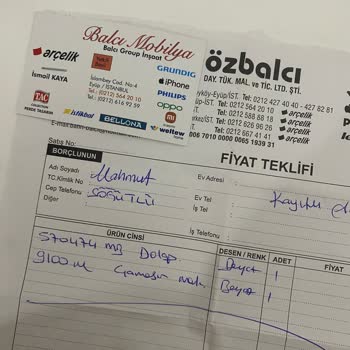 Balcı Mobilya
Balcı Group İnşaat
arçelik
İsmail KAYA
İslambey Cad. No:4
Eyüp / İSTANBUL
Tel.: (0212) 564 20 10
(0212) 616 92 39
GRUNDIG
iPhone
PHILIPS
oppo
mi
weltew
TAÇ
PERDE TASARIM
istikbal
BELLONA
özbalcı
DAY. TÜK. MAL. ve TİC. LTD. ŞTİ.
Tel: 0212 427 40 40 - 427 82 81
Tel: 0212 564 20 10 arçelik
Tel: 0212 588 88 18 arçelik
Tel: 0212 626 96 26 arçelik
Tel: 0212 667 41 41 arçelik
006 7010 0000 0065 1939 31
Satış No:
FİYAT TEKLİFİ
BORÇLUNUN
Adı Soyadı Mahmut Ev Adresi
TC.Kimlik No SÖĞÜTLÜ
Cep Telefonu Ev Tel
Diğer İş Tel
İş Telefonu
ÜRÜN CİNSİ DESEN / RENK ADET FİYAT
570474 mb Dolap Beyaz 1
9100 M Çamaşır mak Beyaz 1